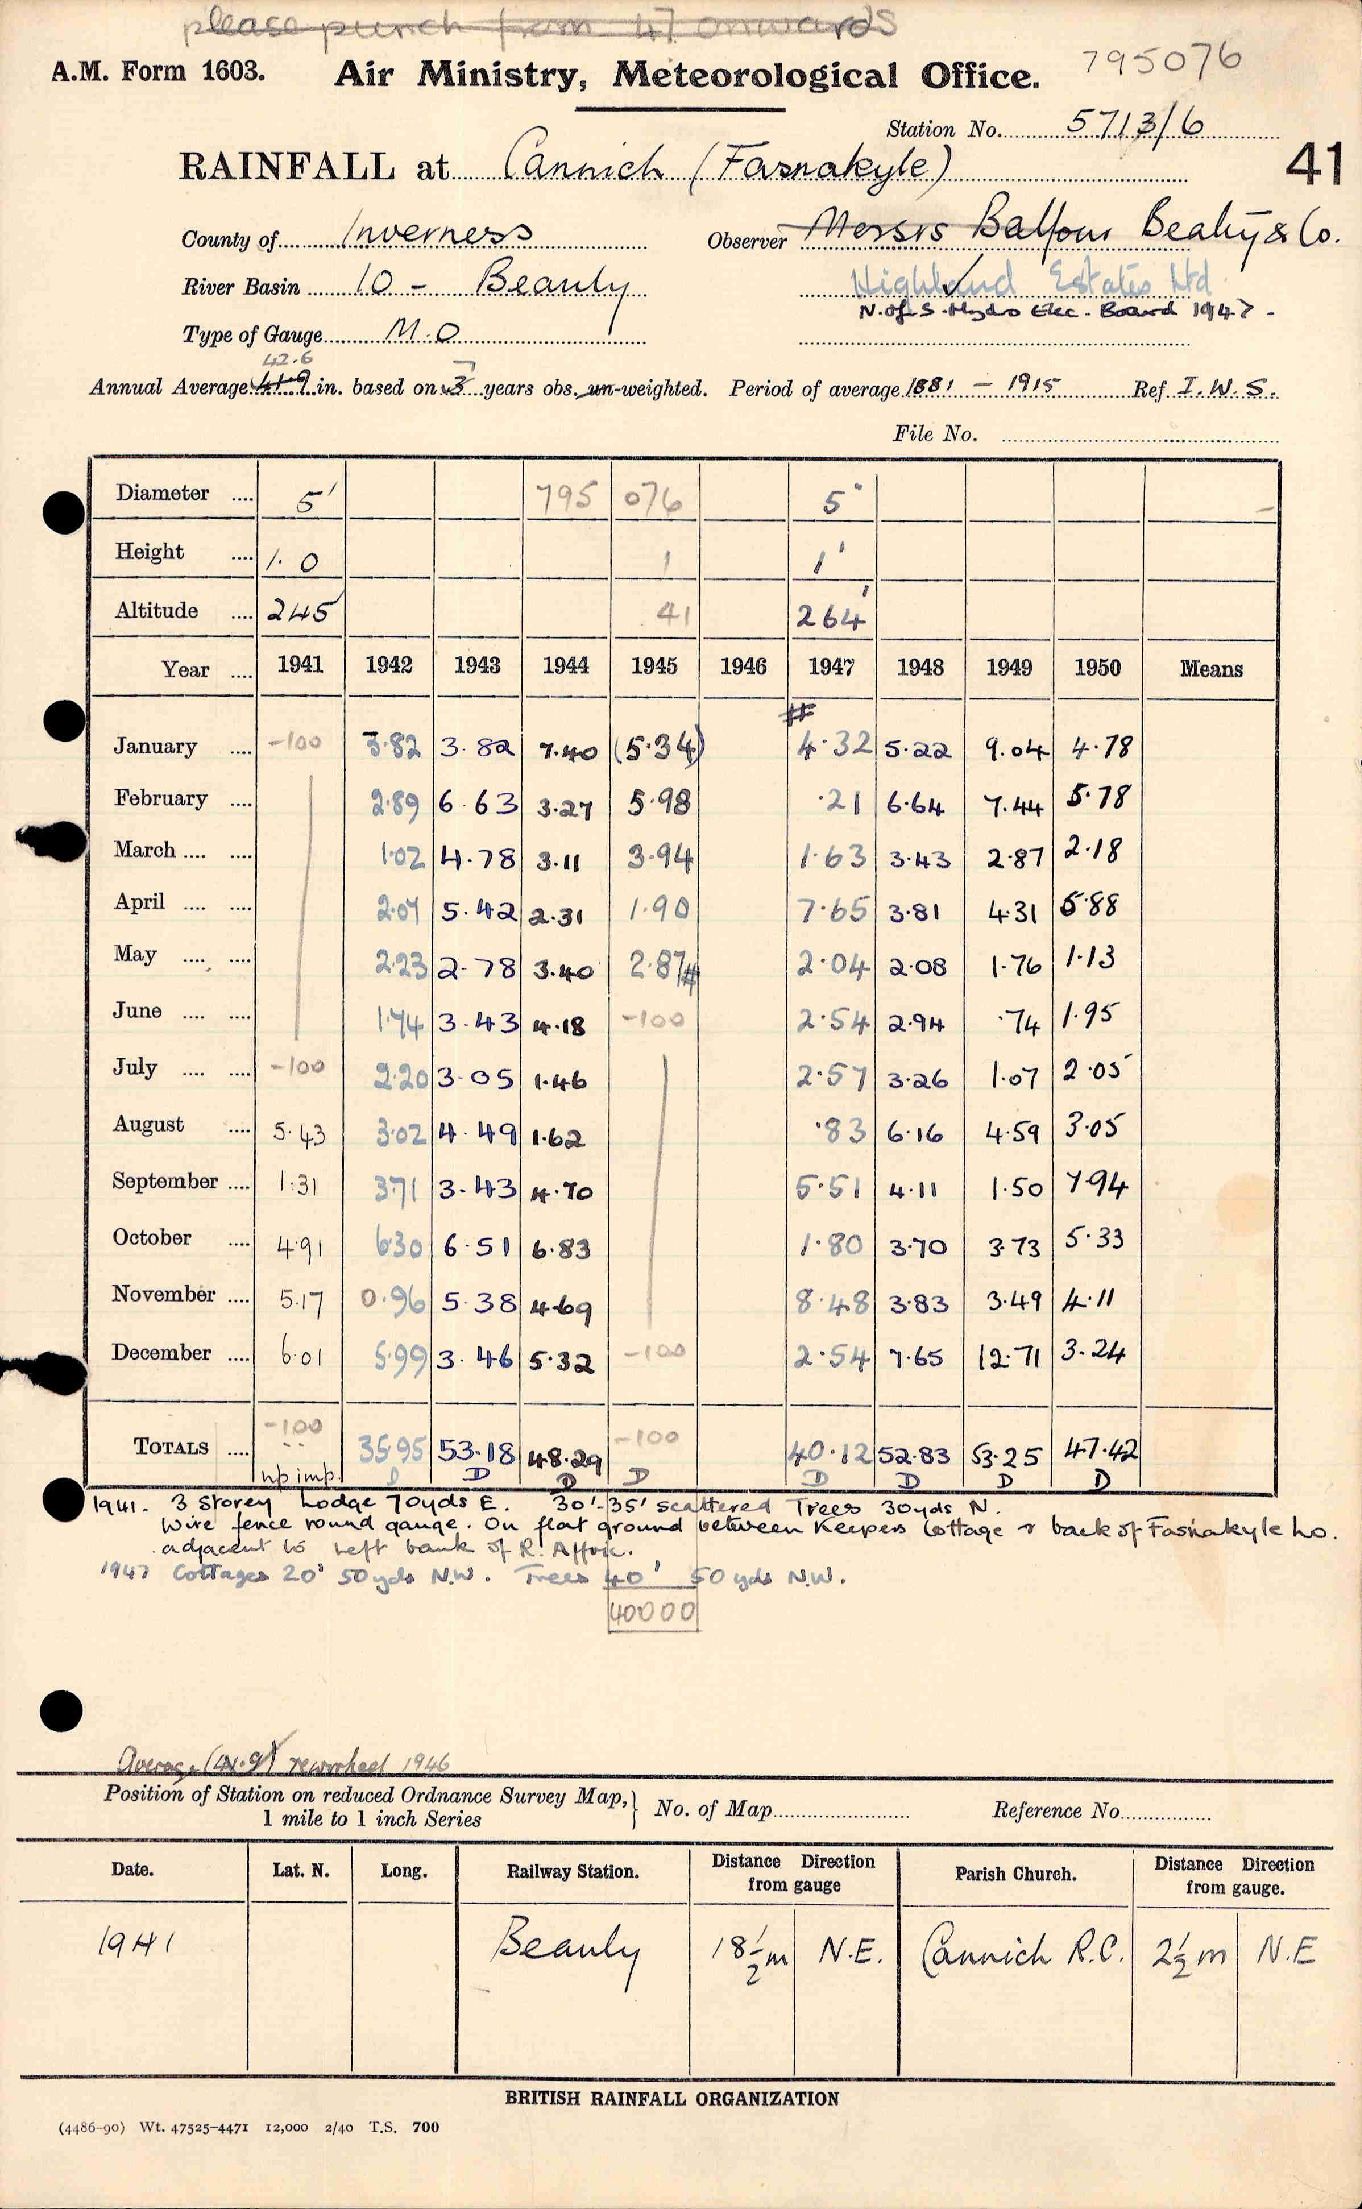 please punch from 47 onwards
A.M. Form 1603. Air Ministry, Meteorological Office. 795076
Station No. 5713/6
RAINFALL at Cannich (Fasnakyle) 41
County of Inverness Observer Messrs Balfour Beatty & Co.
Highland Estates Ltd
River Basin 10 - Beauly
N. of S. Hydro Elec. Board 1947 -
Type of Gauge M.O
42.6
Annual Average 41.9 in. based on 3 7 years obs. un-weighted. Period of average 1881 - 1915 Ref I.W.S.
File No.
Diameter 5' 795 076 5"
Height 1. 0 1 1'
Altitude 245 41 264'
Year 1941 1942 1943 1944 1945 1946 1947 1948 1949 1950 Means
#
January -100 3.82 3.82 7.40 (5.34) 4.32 5.22 9.04 4.78
February 2.89 6.63 3.27 5.98 .21 6.64 7.44 5.78
March 1.02 4.78 3.11 3.94 1.63 3.43 2.87 2.18
April 2.07 5.42 2.31 1.90 7.65 3.81 4.31 5.88
May 2.23 2.78 3.40 2.87# 2.04 2.08 1.76 1.13
June 1.74 3.43 4.18 -100 2.54 2.94 .74 1.95
July -100 2.20 3.05 1.46 2.57 3.26 1.07 2.05
August 5.43 3.02 4.49 1.62 .83 6.16 4.59 3.05
September 1.31 3.71 3.43 4.70 5.51 4.11 1.50 7.94
October 4.91 6.30 6.51 6.83 1.80 3.70 3.73 5.33
November 5.17 0.96 5.38 4.69 8.48 3.83 3.49 4.11
December 6.01 5.99 3.46 5.32 -100 2.54 7.65 12.71 3.24
TOTALS -100 35.95 53.18 48.29 -100 40.12 52.83 53.25 47.42
np imp. D D D D D D D D
1941. 3 Storey Lodge 70yds E. 30'-35' scattered Trees 30yds N.
Wire fence round gauge. On flat ground between Keepers Cottage & back of Fasnakyle Lo.
adjacent to left bank of R. Affric.
1947 Cottages 20' 50yds N.W. Trees 40' 50yds N.W.
40000
Average (41.9) reworked 1946
Position of Station on reduced Ordnance Survey Map,
1 mile to 1 inch Series
No. of Map Reference No.
Date. Lat. N. Long. Railway Station. Distance Direction from gauge Parish Church. Distance Direction from gauge.
1941 Beauly 18½m N.E. Cannich R.C. 2½m N.E
BRITISH RAINFALL ORGANIZATION
(4486-90) Wt. 47525-4471 12,000 2/40 T.S. 700